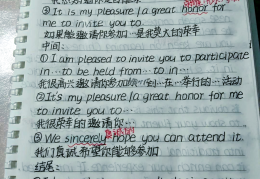 ③It is my pleasure /a great honor for
me to invite you to
如果能邀请你参加…是我莫大的荣幸
中间:
①I am pleased to invite you to participate
in …to be held from…to in …
我很高兴邀请你参加从…到…在…举行的…活动
②It's my pleasure /a great honor for me
to invite you to …
我很荣幸的邀请你…
③ We sincerely hope you can attend it.
我们真诚希望你能够参加
结尾: